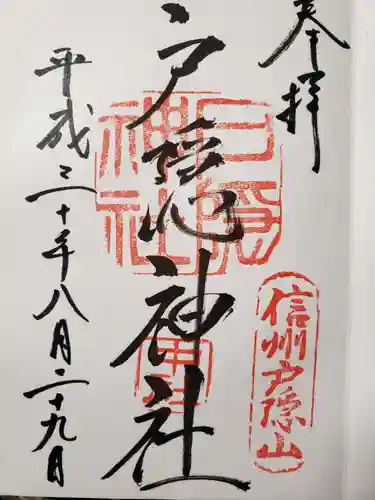 奉拝
信州戸隠山
戸隠神社
戸隠神社
平成三十年八月二十九日